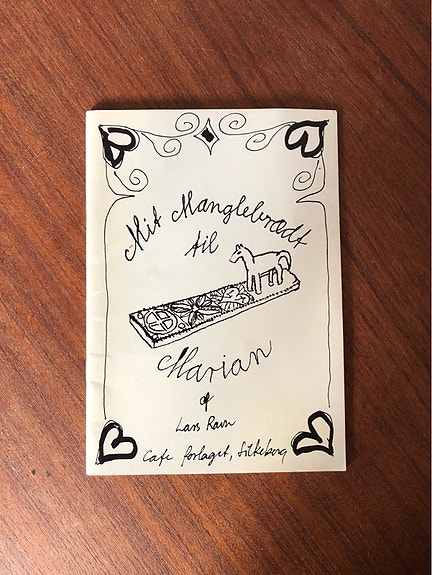 Mit Manglebrædt
til
Marian
af
Lars Ravn
Cafe forlaget, Silkeborg